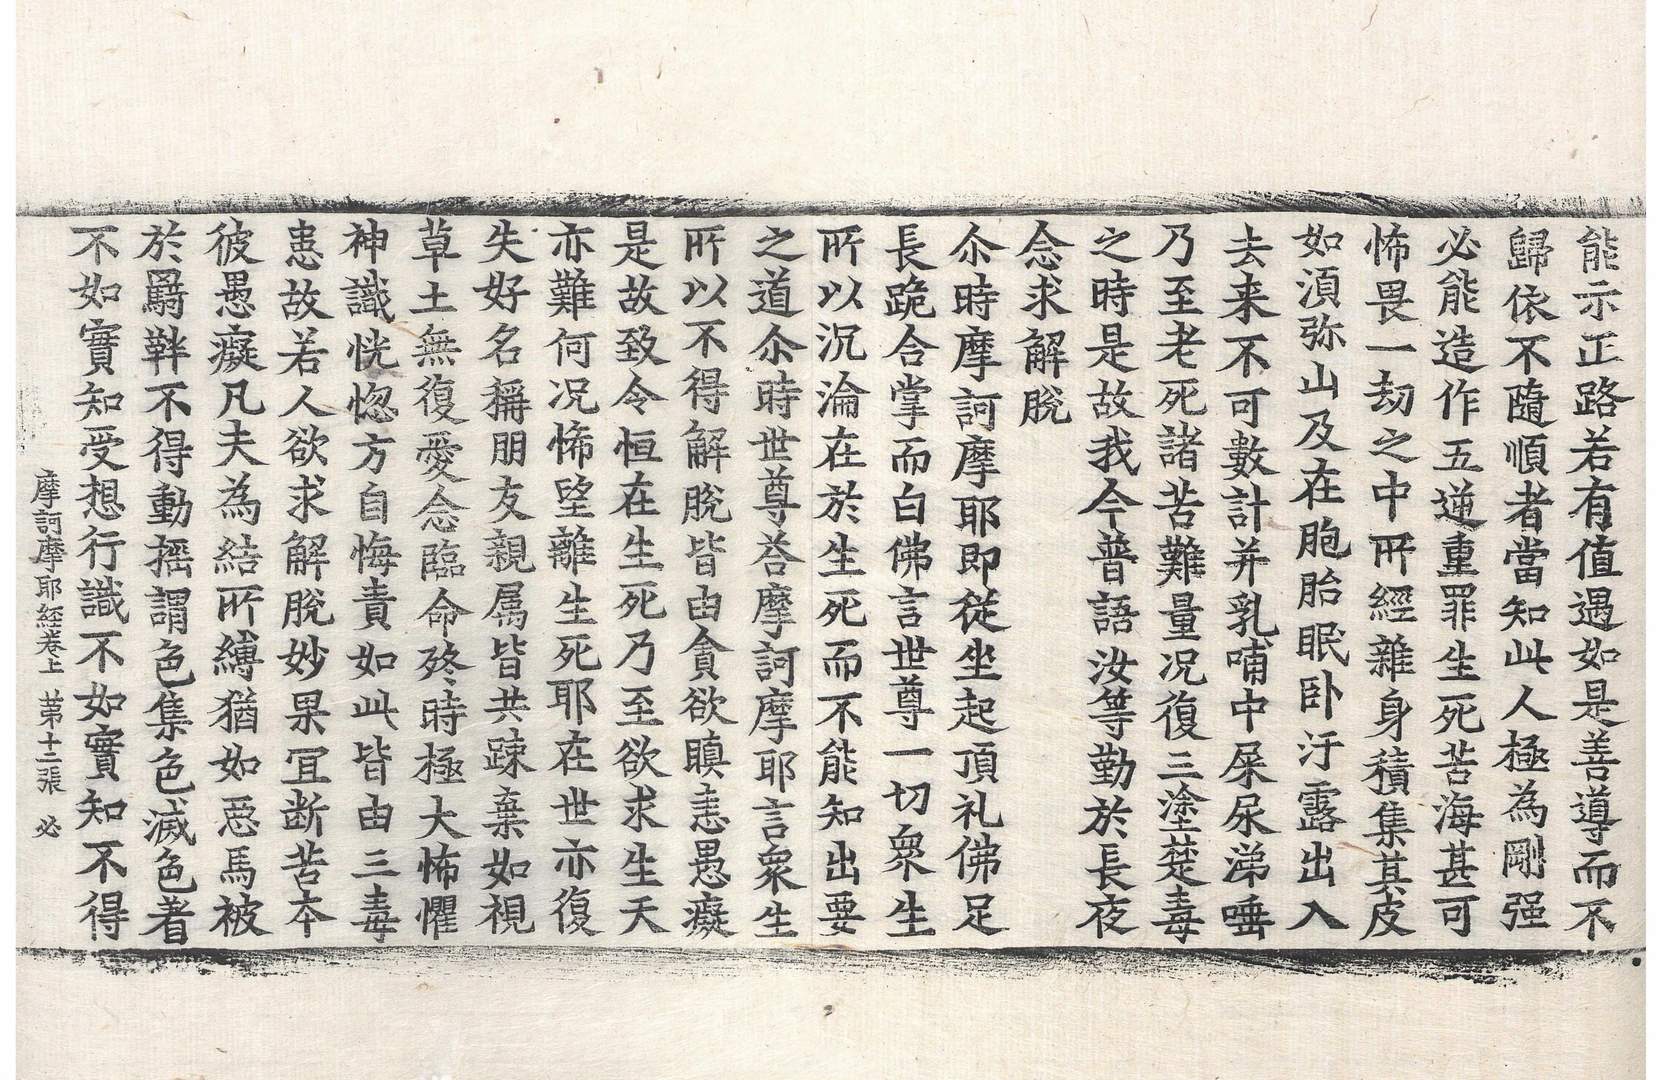 能示正路若有值遇如是善導而不
歸依不隨順者當知此人極為剛强
必能造作五逆重罪生死苦海甚可
怖畏一劫之中所經雜身積集其皮
如須弥山及在胞胎眠卧汙露出入
去来不可數計并乳哺中屎尿涕唾
乃至老死諸苦難量况復三塗楚毒
之時是故我今普語汝等勤於長夜
念求解脫
尒時摩訶摩耶即從坐起頂礼佛足
長跪合掌而白佛言世尊一切衆生
所以沉淪在於生死而不能知出要
之道尒時世尊荅摩訶摩耶言衆生
所以不得解脫皆由貪欲瞋恚愚癡
是故致令恒在生死乃至欲求生天
亦難何况悕望離生死耶在世亦復
失好名稱朋友親属皆共踈棄如視
草土無復愛念臨命終時極大怖懼
神識恍惚方自悔責如此皆由三毒
患故若人欲求解脫妙果宜断苦本
彼愚癡凡夫為結所縛猶如惡馬被
於羈靽不得動摇謂色集色滅色著
不如實知受想行識不如實知不得
摩訶摩耶經卷上 苐十二張 必